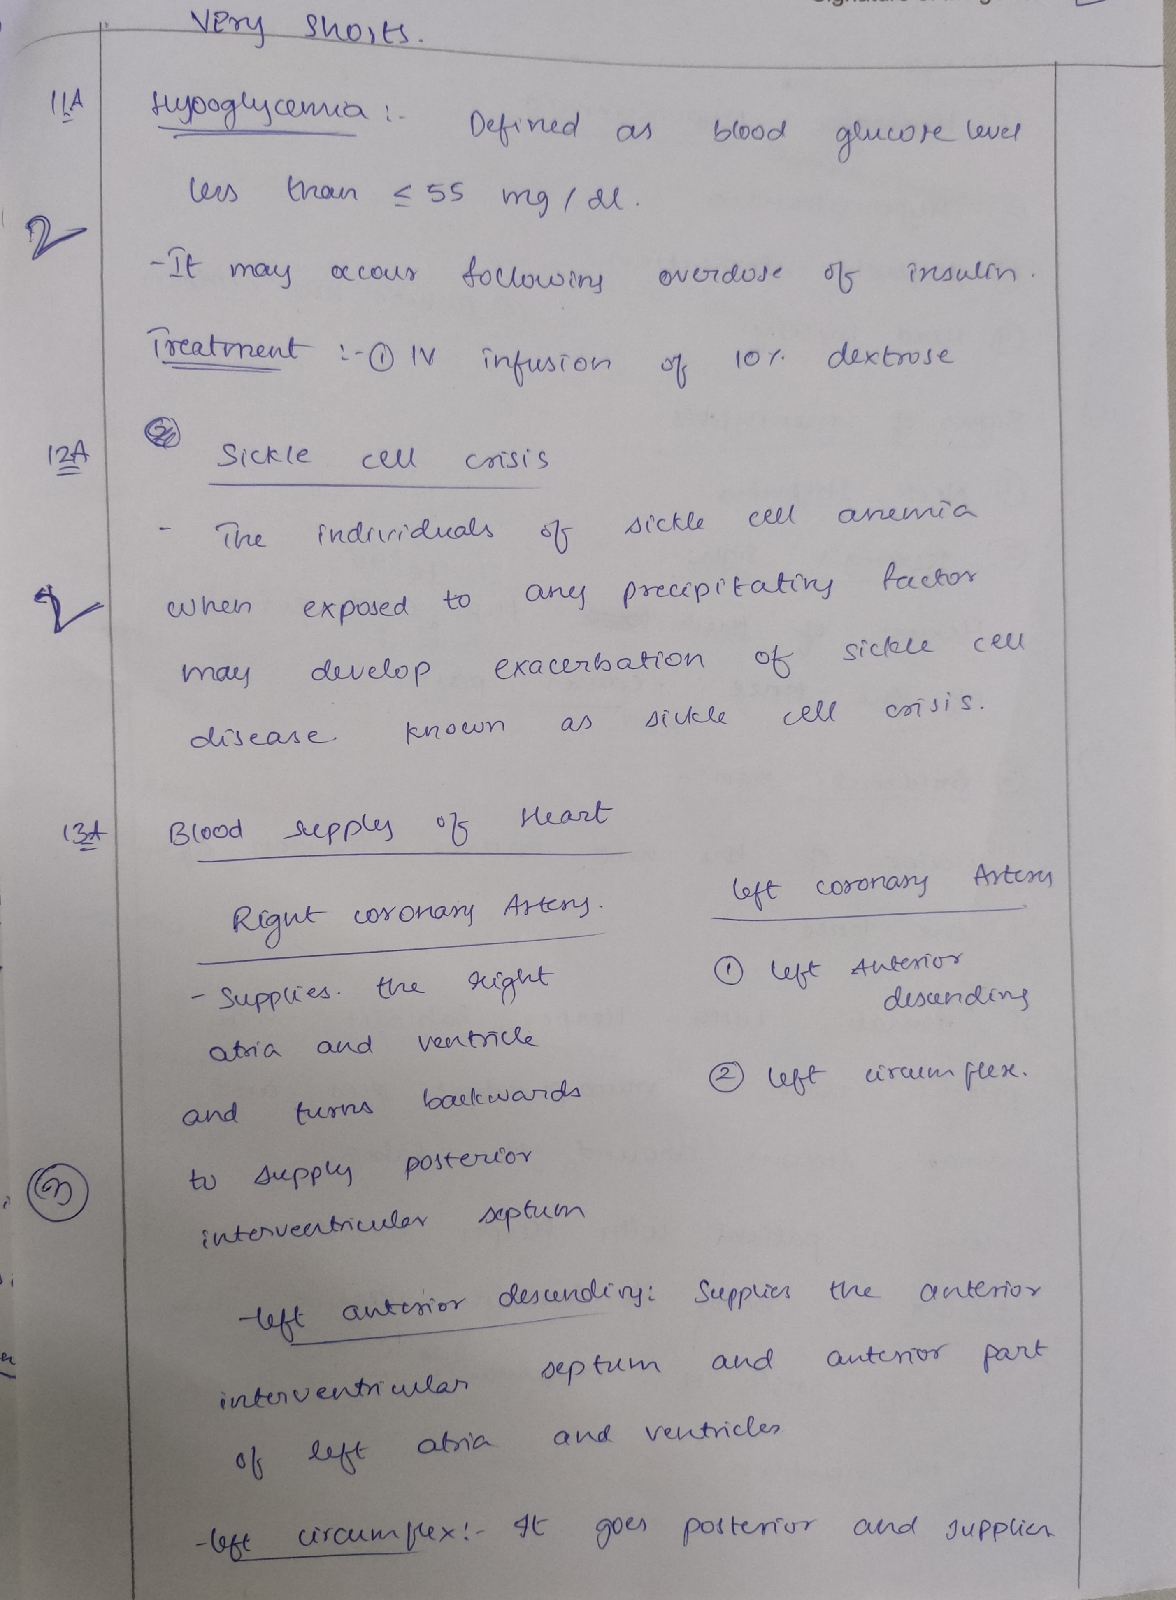 VERY Shorts.
11A Hypoglycemia :- Defined as blood glucose level
less than ≤ 55 mg / dl.
2
- It may occour following overdose of insulin.
Treatment :- ① IV infusion of 10% dextrose
12A Sickle cell crisis
- The individuals of sickle cell anemia
when exposed to any precipitating factor
2
may develop exacerbation of sickle cell
disease. known as sickle cell crisis.
13A Blood supply of Heart
Right coronary Artery. left coronary Artery
- Supplies. the right ① left Anterior
descending
atria and ventricle
② left circumflex.
and turns backwards
to supply posterior
interventricular septum
- left anterior descending: Supplies the anterior
interventricular septum and anterior part
of left atria and ventricles
- left circumflex:- It goes posterior and supplies